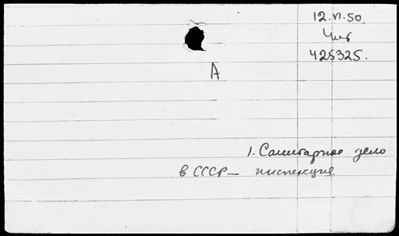 12.VI.50.
Чит
425325.
А
1. Санитарное дело
в СССР — инспекция.